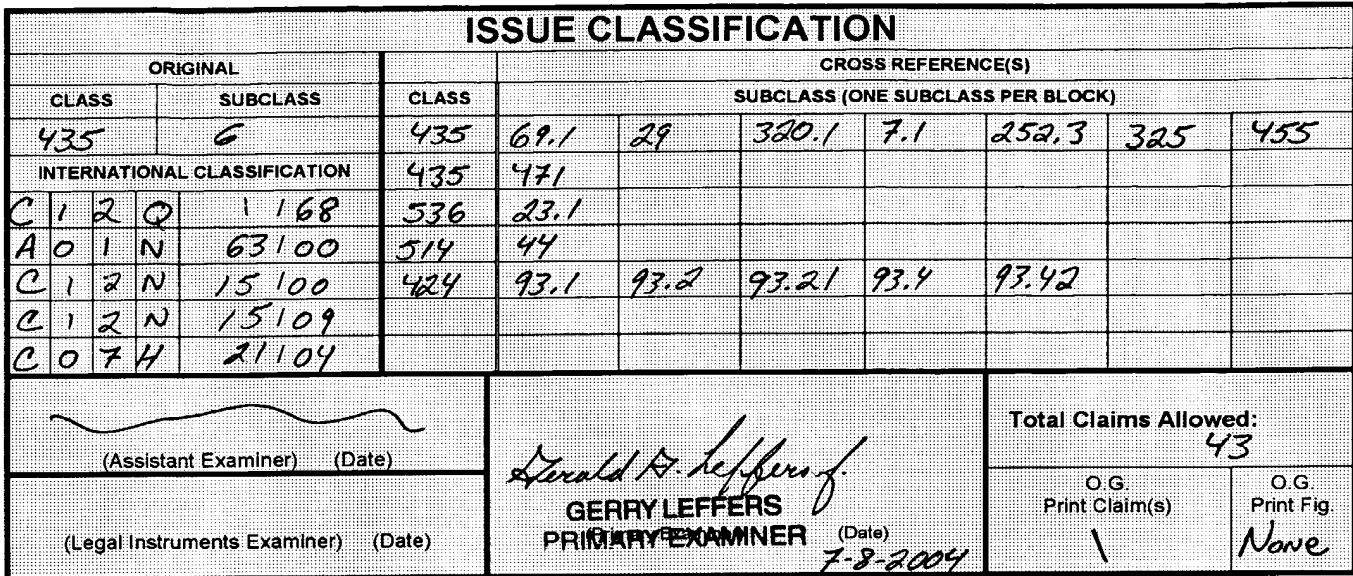 ISSUE CLASSIFICATION
ORIGINAL CROSS REFERENCE(S)
CLASS SUBCLASS CLASS SUBCLASS (ONE SUBCLASS PER BLOCK)
435 6 435 69.1 29 320.1 7.1 252.3 325 455
INTERNATIONAL CLASSIFICATION 435 471
C 1 2 Q 1 / 68 536 23.1
A 0 1 N 63 / 00 514 44
C 1 2 N 15 / 00 424 93.1 93.2 93.21 93.4 93.42
C 1 2 N 15 / 09
C 0 7 H 21 / 04
(Assistant Examiner) (Date)
(Legal Instruments Examiner) (Date)
Gerald G. Leffers Jr.
GERRY LEFFERS
PRIMARY EXAMINER (Date)
7-8-2004
Total Claims Allowed:
43
O.G. Print Claim(s) O.G. Print Fig.
1 None